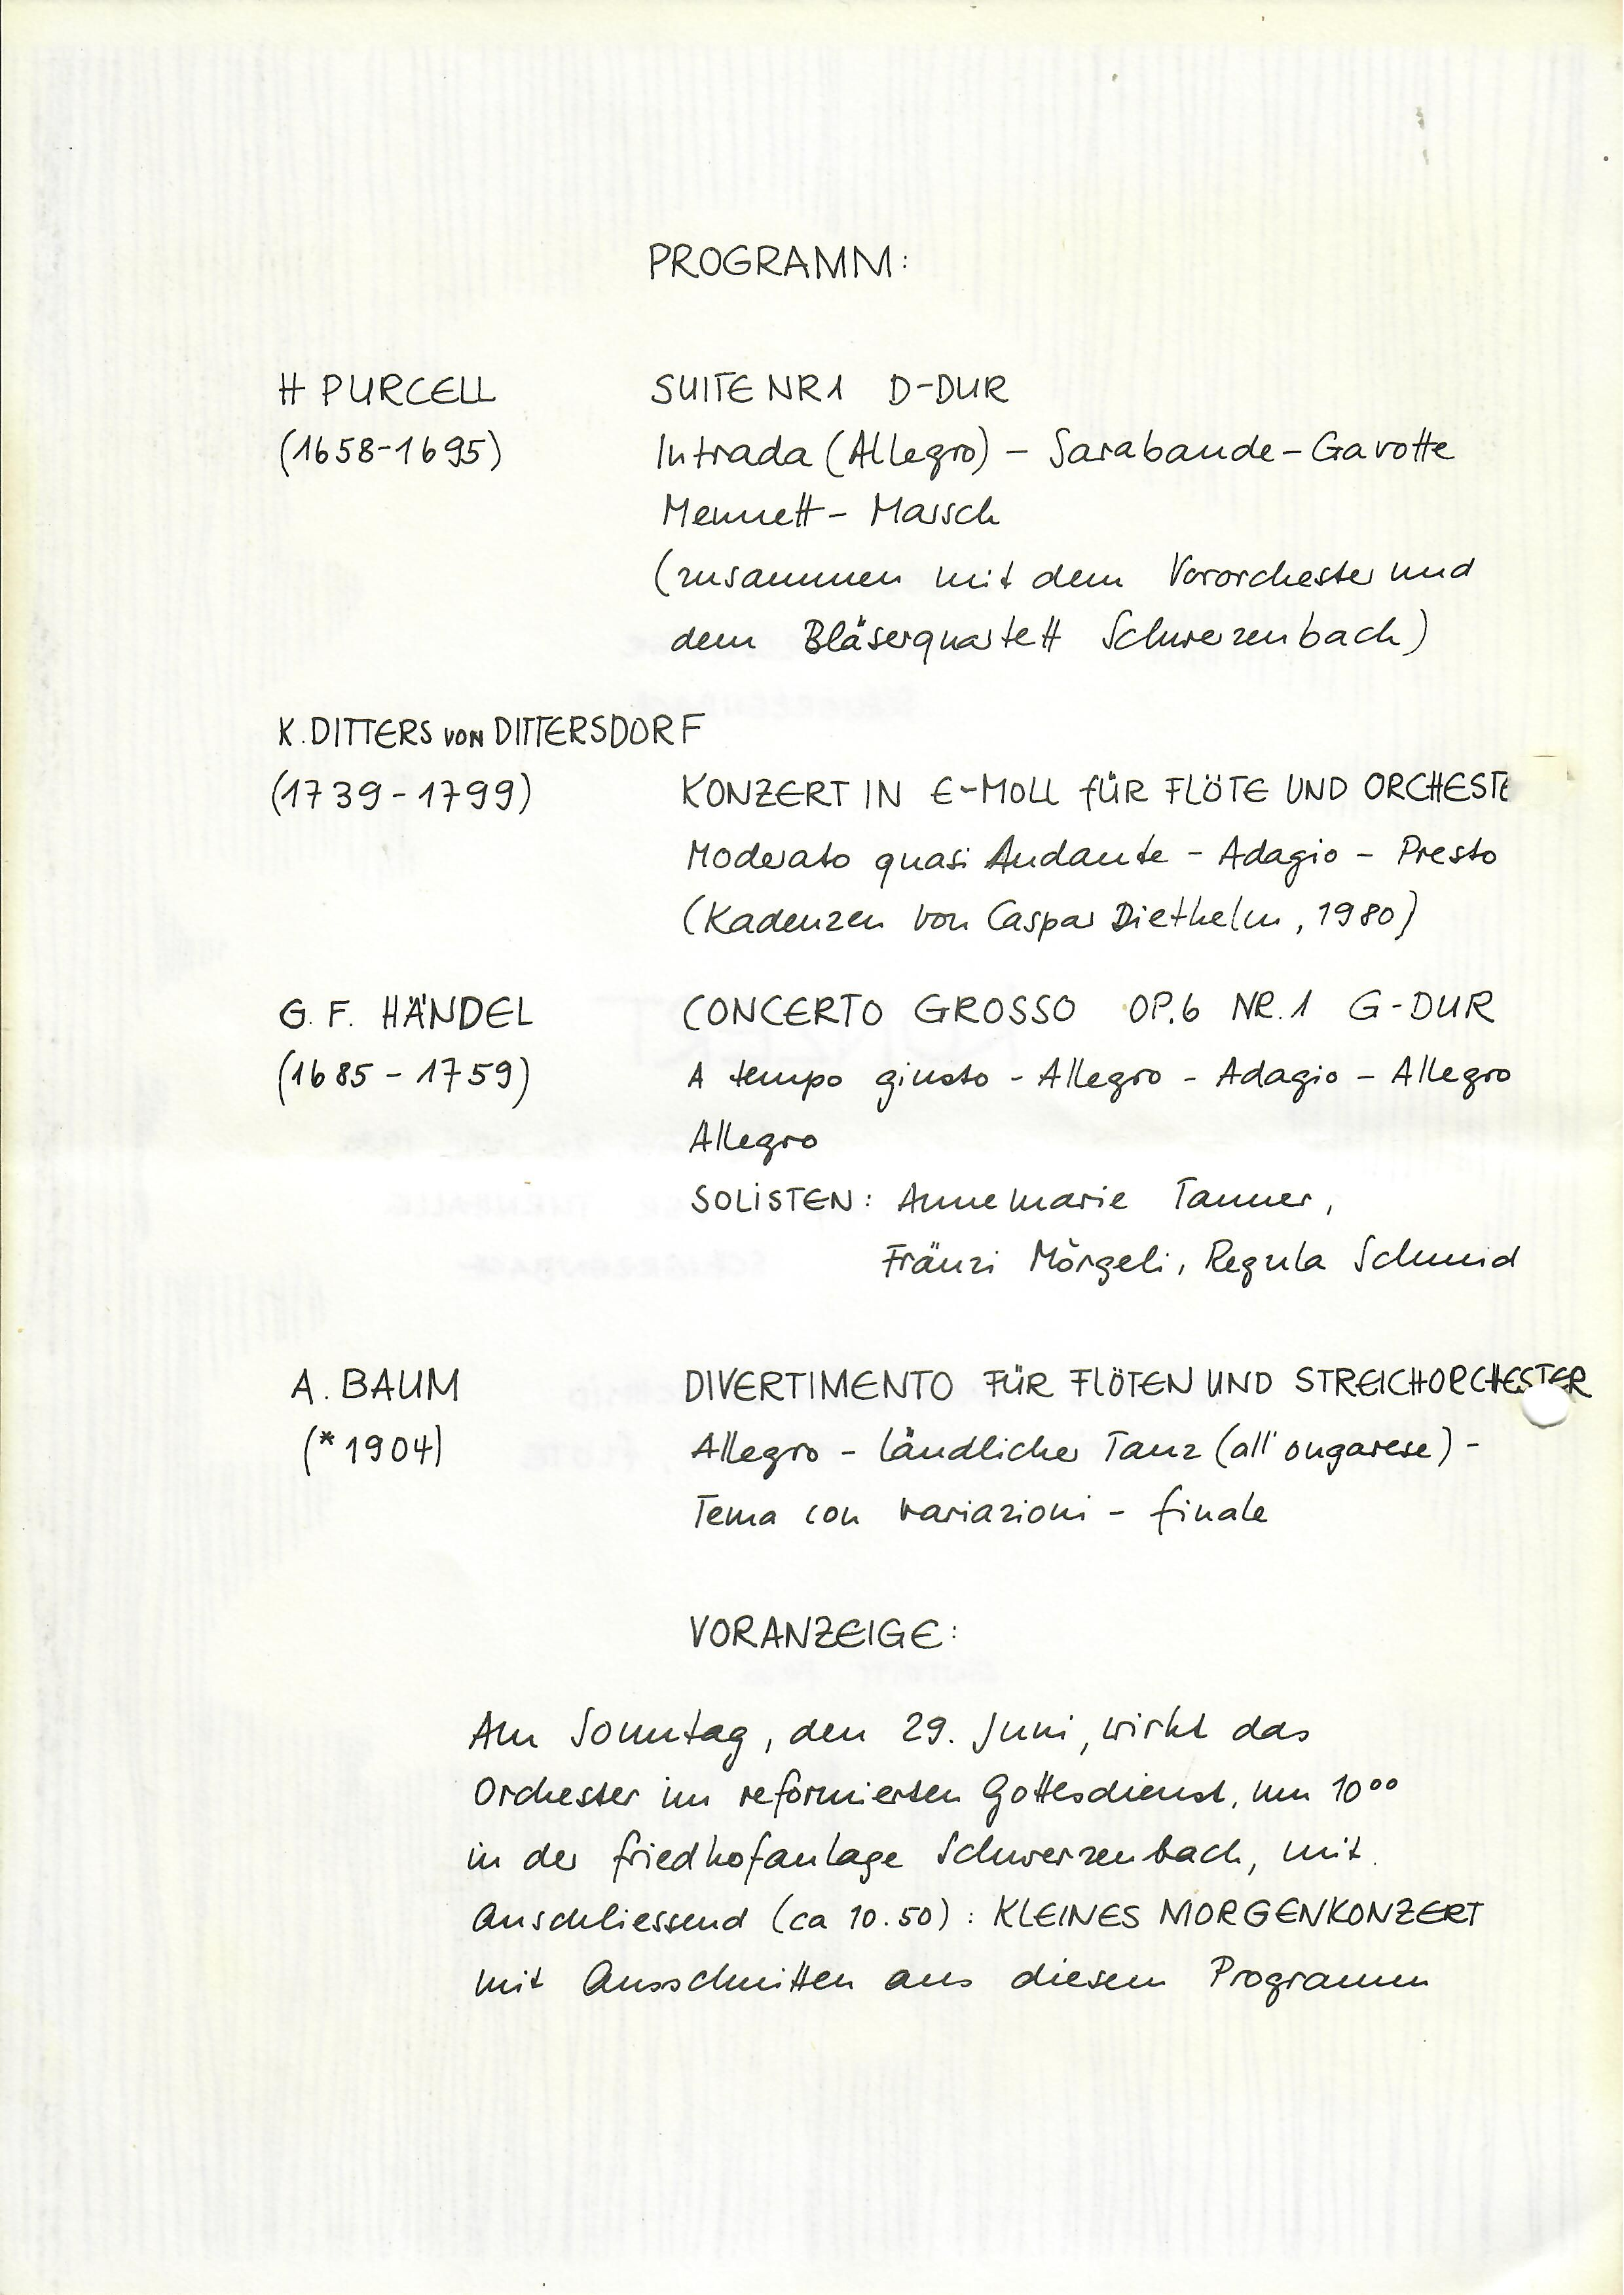 PROGRAMM:
H PURCELL SUITE NR 1 D-DUR
(1658-1695) Intrada (Allegro) – Sarabande – Gavotte
Menuett – Marsch
(zusammen mit dem Vororchester und
dem Bläserquartett Schwerzenbach)
K. DITTERS VON DITTERSDORF
(1739-1799) KONZERT IN E-MOLL FÜR FLÖTE UND ORCHESTE
Moderato quasi Andante - Adagio - Presto
(Kadenzen von Caspar Diethelm, 1980)
G. F. HÄNDEL CONCERTO GROSSO OP.6 NR.1 G-DUR
(1685-1759) A tempo giusto - Allegro - Adagio - Allegro
Allegro
SOLISTEN: Annemarie Tanner,
Fränzi Mörgeli, Regula Schmid
A. BAUM DIVERTIMENTO FÜR FLÖTEN UND STREICHORCHESTER
(*1904) Allegro - ländlicher Tanz (all'ongarese) -
Tema con variazioni - finale
VORANZEIGE:
Am Sonntag, den 29. Juni, wirkt das
Orchester im reformierten Gottesdienst, um 10⁰⁰
in der Friedhofanlage Schwerzenbach, mit.
Anschliessend (ca 10.50): KLEINES MORGENKONZERT
mit Ausschnitten aus diesem Programm